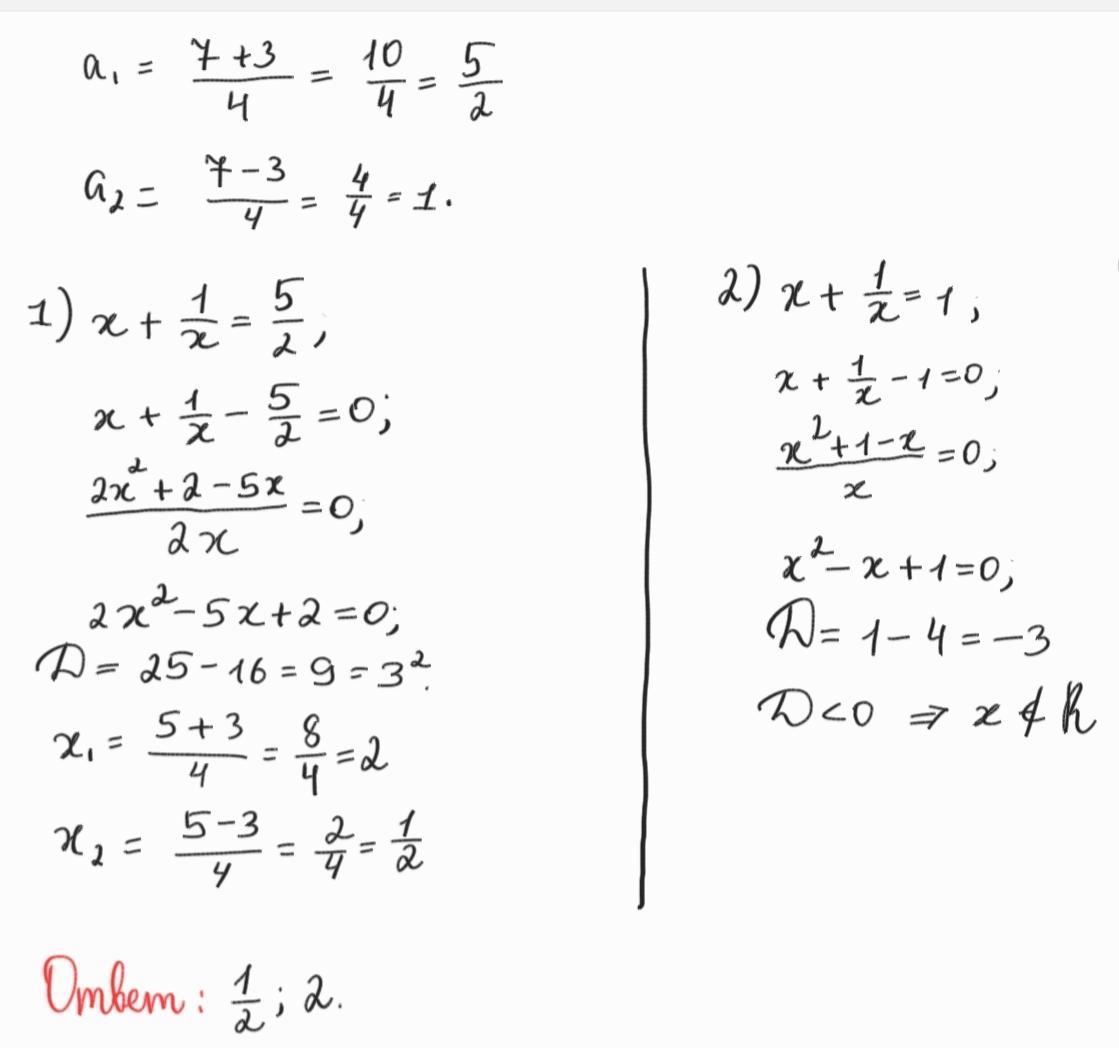 a₁ = (7+3)/4 = 10/4 = 5/2
a₂ = (7-3)/4 = 4/4 = 1.
1) x + 1/x = 5/2,
x + 1/x - 5/2 = 0;
(2x² + 2 - 5x)/(2x) = 0;
2x² - 5x + 2 = 0;
D = 25 - 16 = 9 = 3².
x₁ = (5+3)/4 = 8/4 = 2
x₂ = (5-3)/4 = 2/4 = 1/2
2) x + 1/x = 1;
x + 1/x - 1 = 0;
(x² + 1 - x)/x = 0;
x² - x + 1 = 0;
D = 1 - 4 = -3
D < 0 ⇒ x ∉ R
Ответ: 1/2; 2.